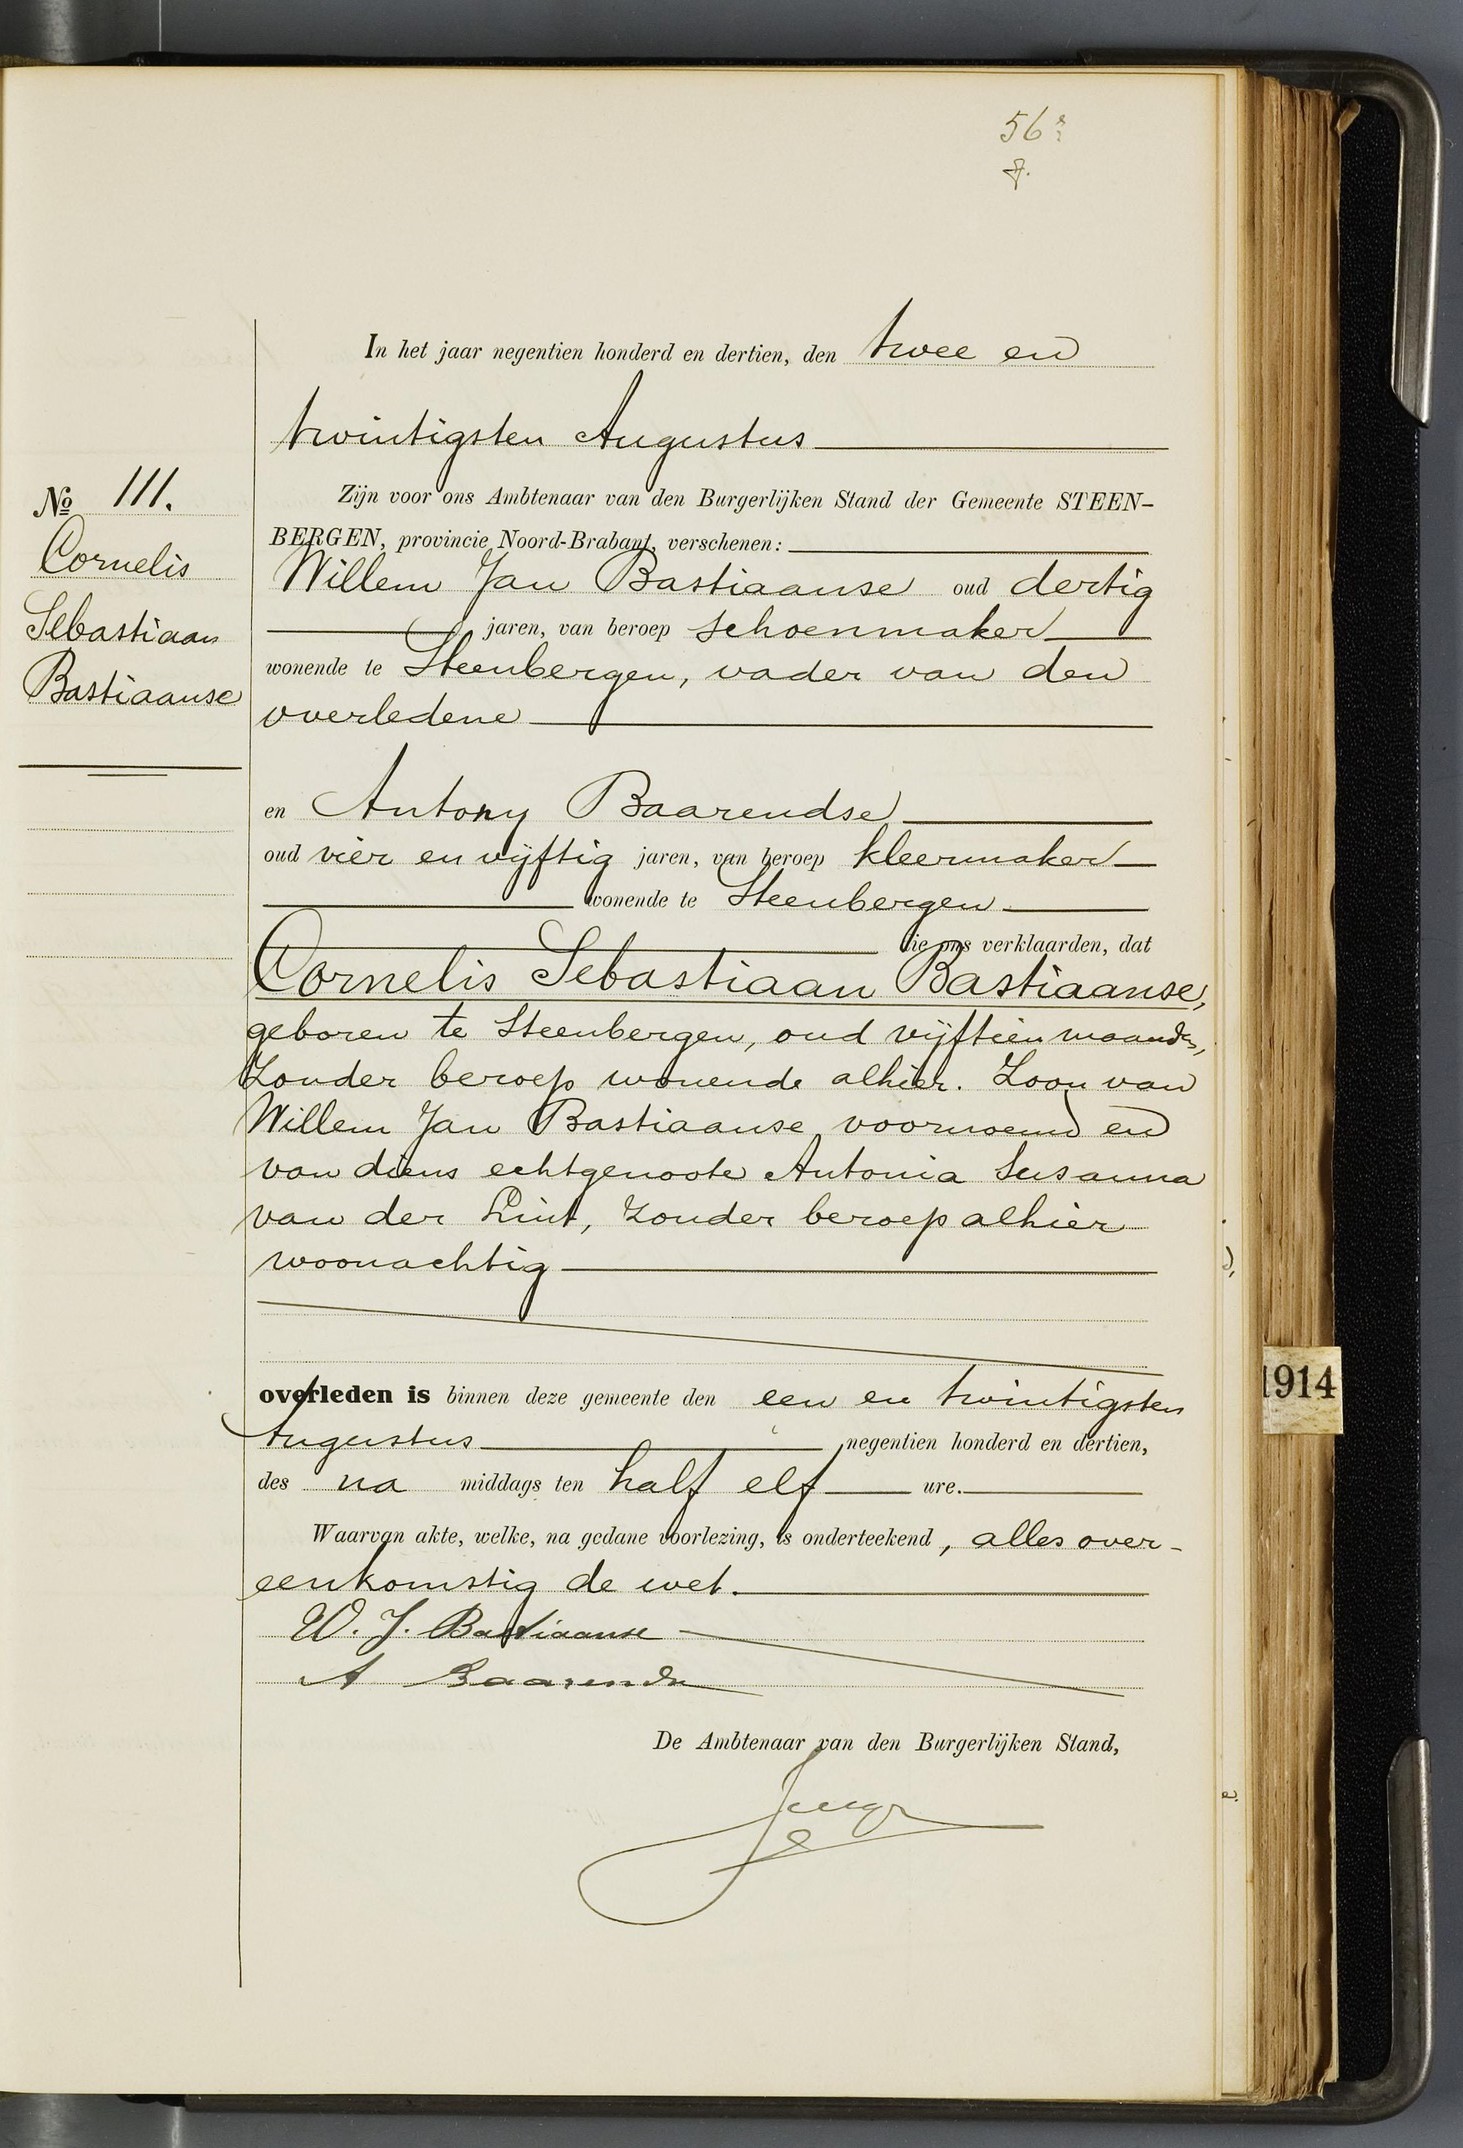 56
In het jaar negentien honderd en dertien, den twee en
twintigsten Augustus
Zijn voor ons Ambtenaar van den Burgerlijken Stand der Gemeente STEEN-
BERGEN, provincie Noord-Brabant, verschenen:
Willem Jan Bastiaanse oud dertig
jaren, van beroep schoenmaker
wonende te Steenbergen, vader van den
overledene
en Antony Baarendse
oud vier en vijftig jaren, van beroep kleermaker
wonende te Steenbergen
die ons verklaarden, dat
Cornelis Sebastiaan Bastiaanse,
geboren te Steenbergen, oud vijftien maanden,
Zonder beroep wonende alhier. Zoon van
Willem Jan Bastiaanse voornoemd en
van diens echtgenoote Antonia Susanna
van der Lint, zonder beroep alhier
woonachtig
overleden is binnen deze gemeente den een en twintigsten
Augustus negentien honderd en dertien,
des na middags ten half elf ure.
Waarvan akte, welke, na gedane voorlezing, is onderteekend, alles over-
eenkomstig de wet.
W. J. Bastiaanse
A Baarendse
De Ambtenaar van den Burgerlijken Stand,
No 111.
Cornelis
Sebastiaan
Bastiaanse
1914